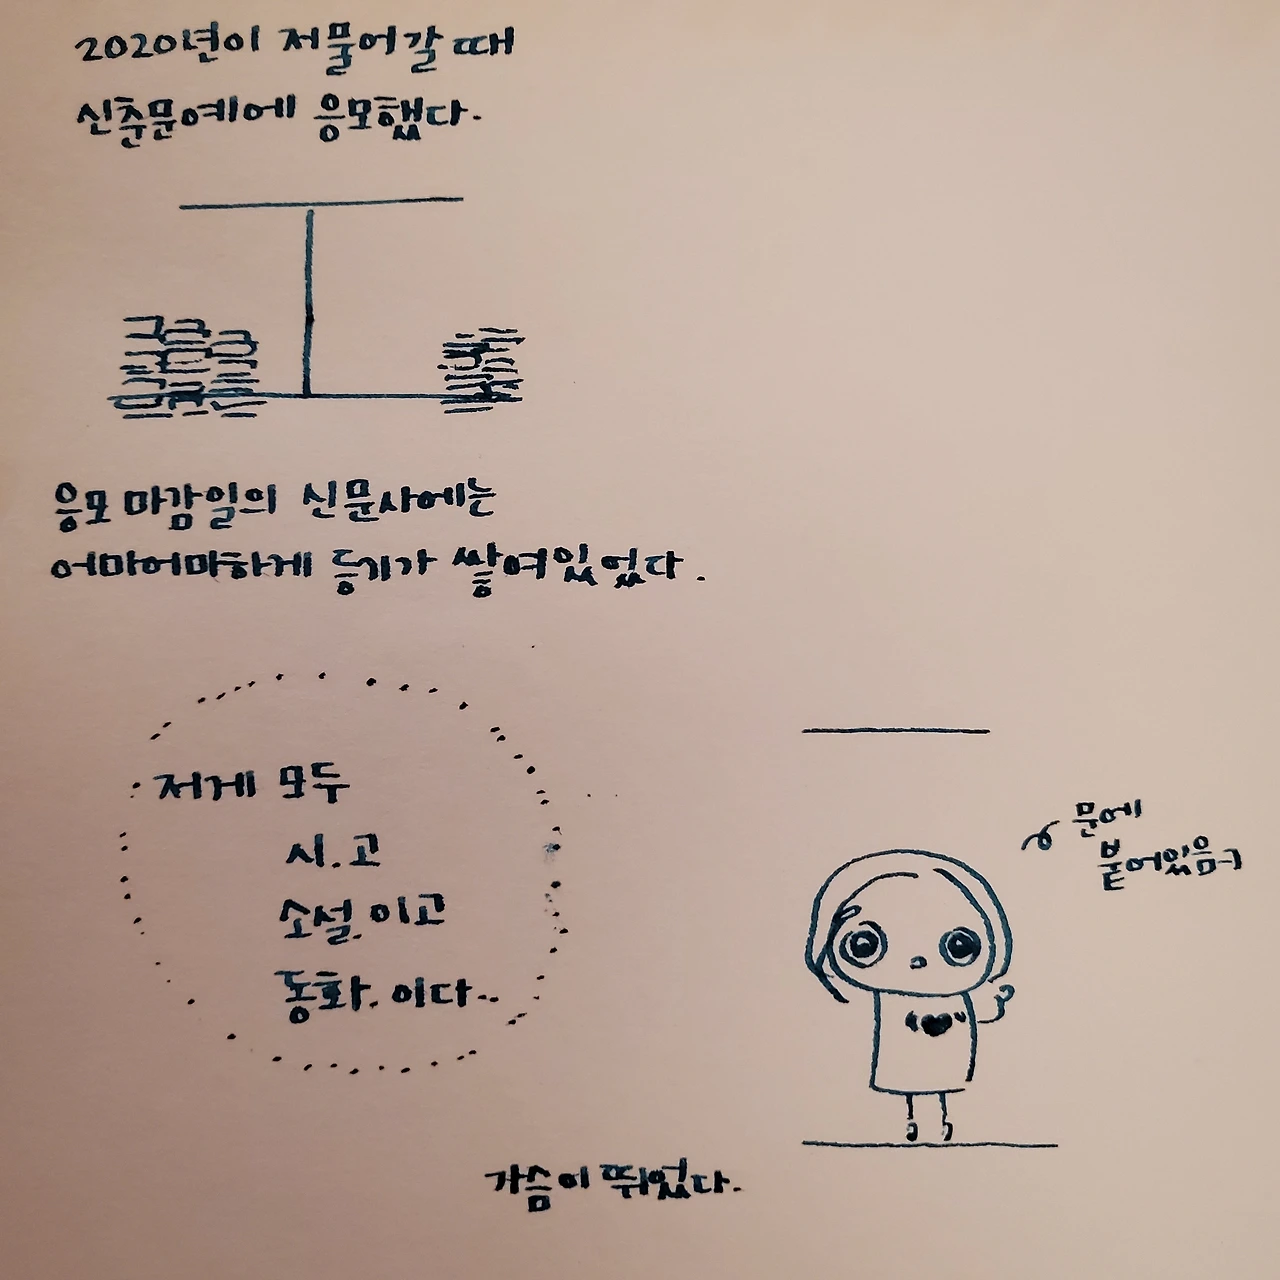 2020년이 저물어갈 때
신춘문예에 응모했다.
응모 마감일의 신문사에는
어마어마하게 등기가 쌓여있었다.
저게 모두
시.고
소설.이고
동화.이다..
문에
붙어있음
가슴이 뛰었다.